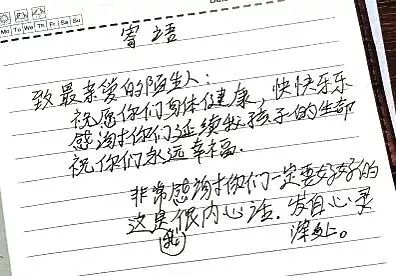 Mo Tu We Th Fr Sa Su
寄语
致最亲爱的陌生人:
祝愿你们身体健康,快快乐乐
感谢你们延续我孩子的生命
祝你们永远幸福.
非常感谢你们一定要好好的
这是我内心话.发自心灵
深处。